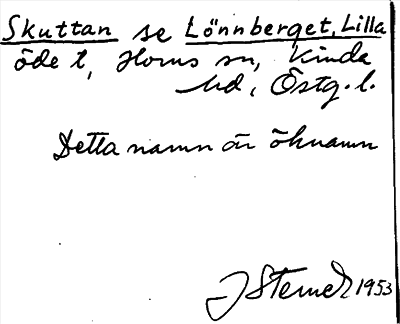 Skuttan se Lönnberget, Lilla
öde t, Horns sn, Kinda
hd, Östg. l.
Detta namn är öknamn
J Sterner 1953